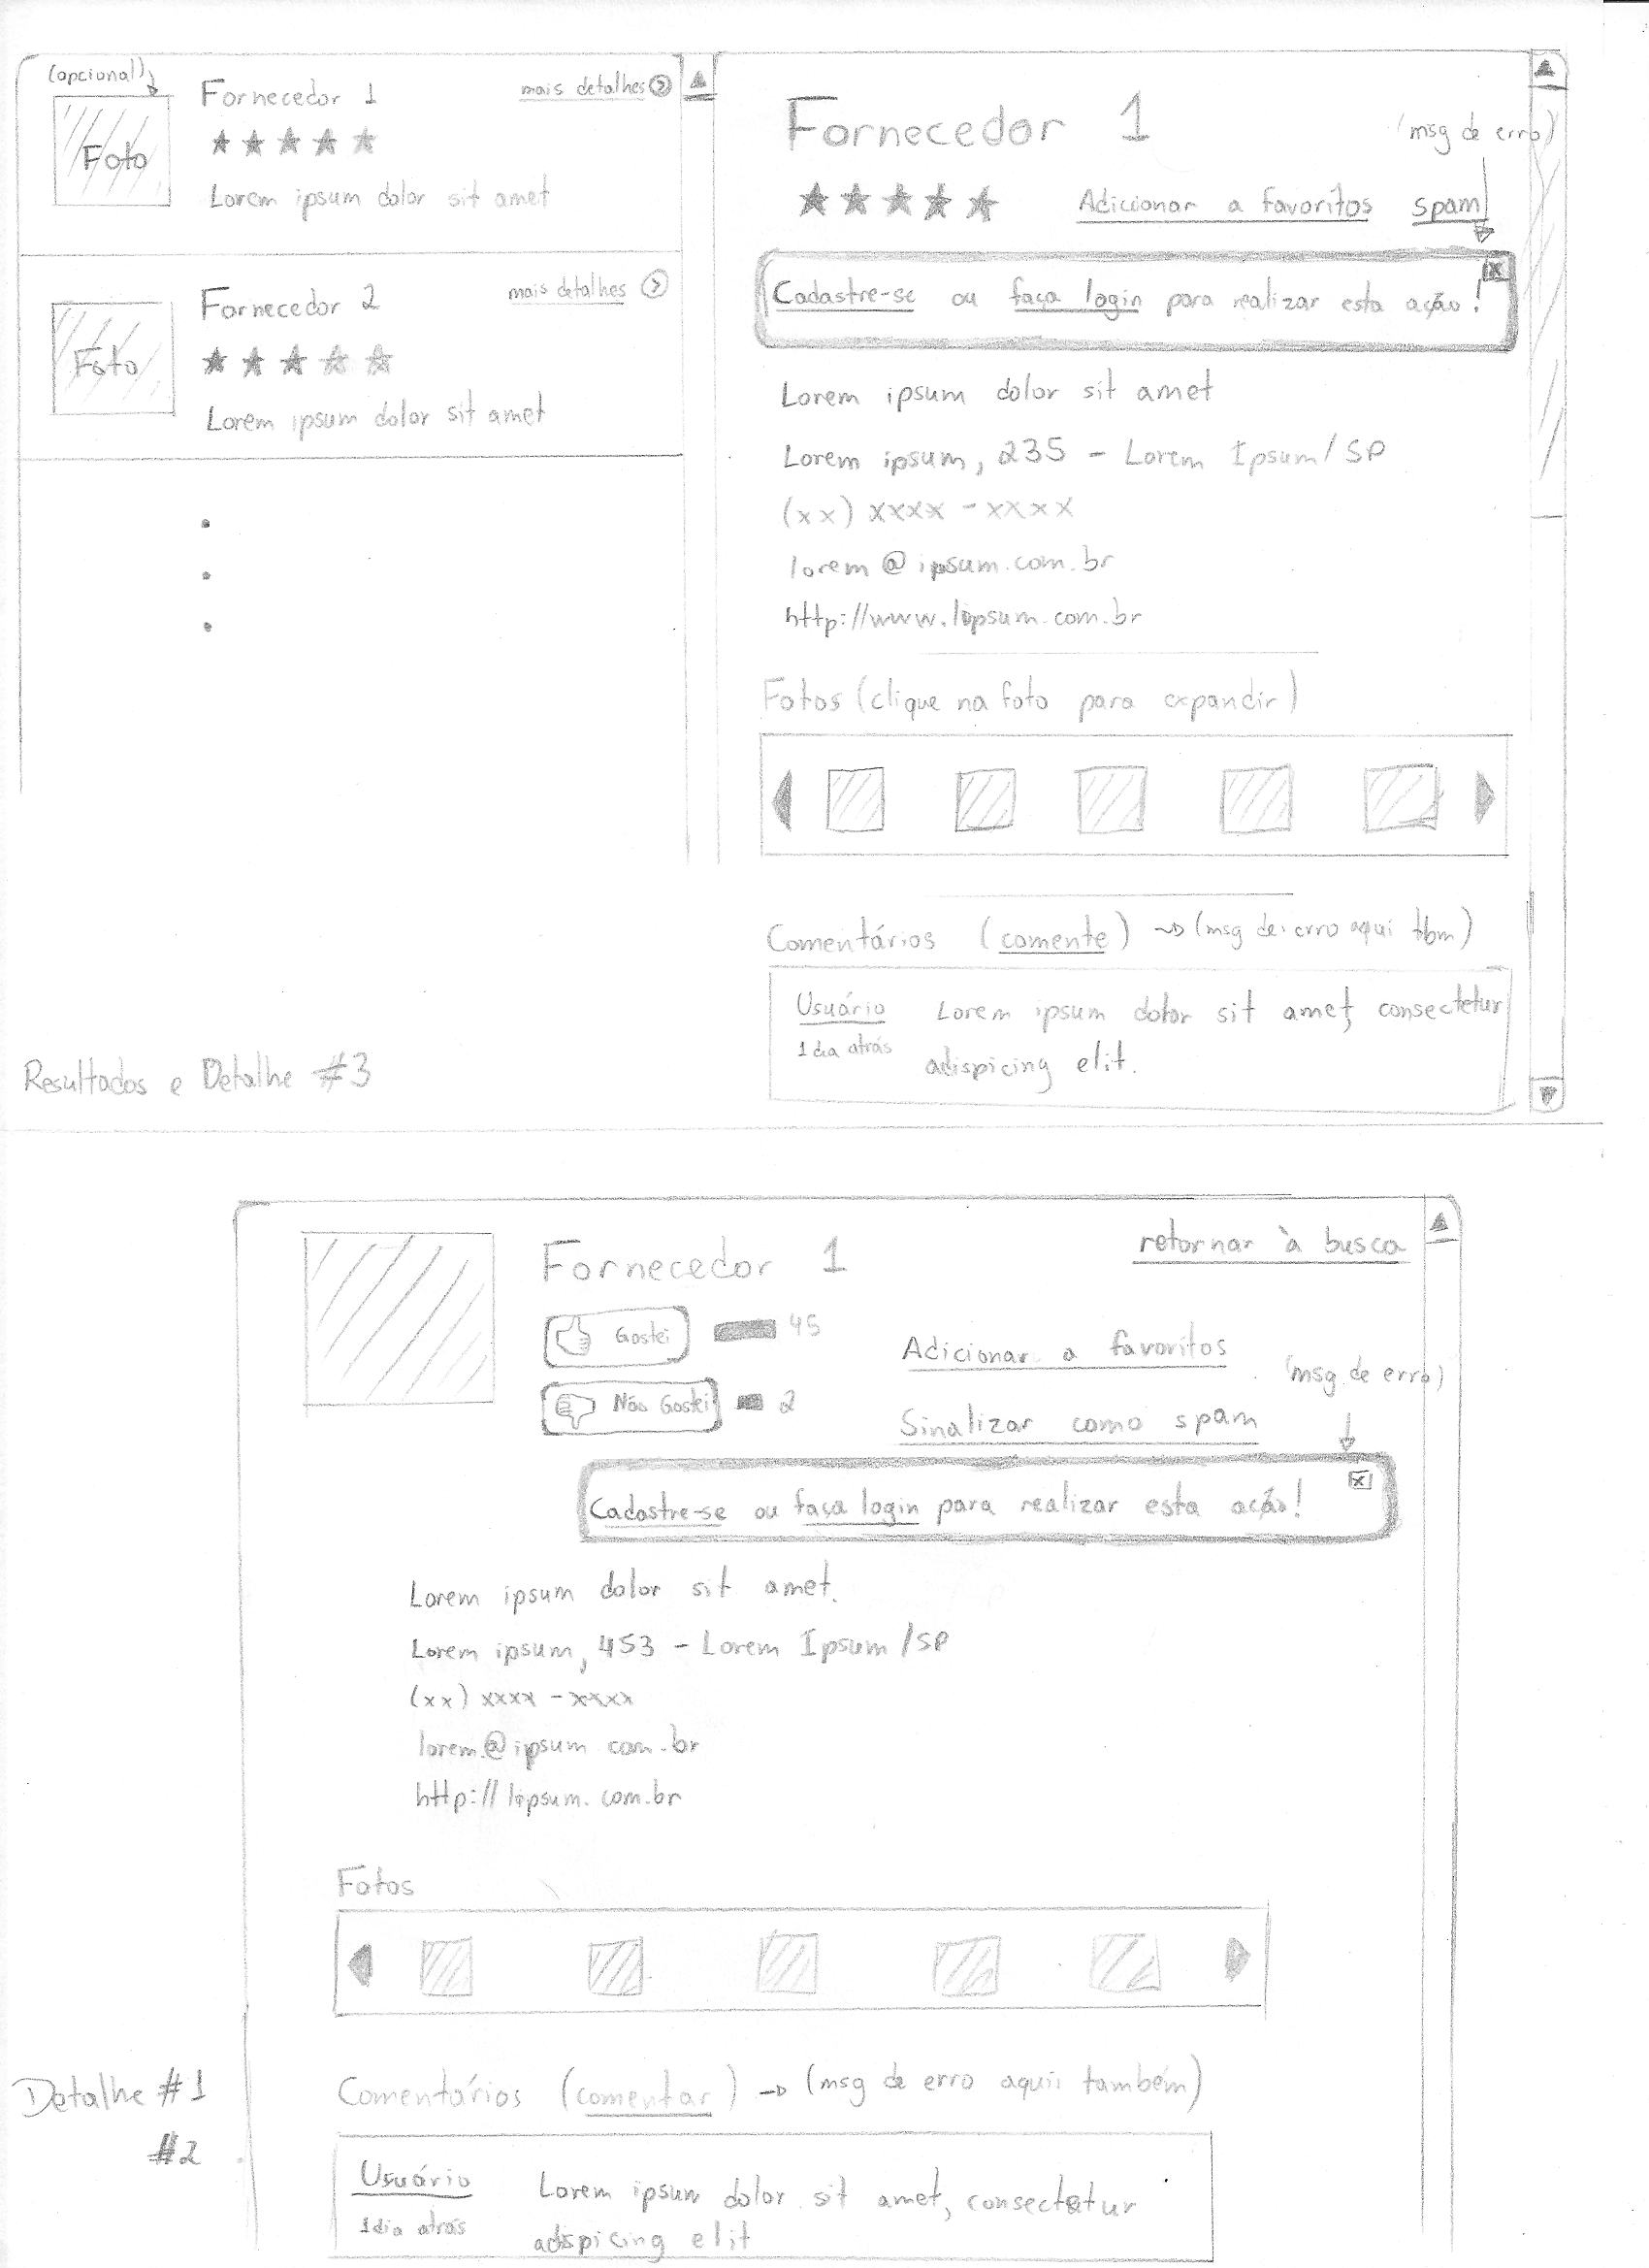 (opcional)
Foto
Fornecedor 1
mais detalhes
Lorem ipsum dolor sit amet
Foto
Fornecedor 2
mais detalhes
Lorem ipsum dolor sit amet
Resultados e Detalhe #3
Fornecedor 1
(msg de erro)
Adicionar a favoritos spam
x
Cadastre-se ou faça login para realizar esta ação!
Lorem ipsum dolor sit amet
Lorem ipsum, 235 - Lorem Ipsum/SP
(xx) xxxx - xxxx
lorem@ipsum.com.br
http://www.lipsum.com.br
Fotos (clique na foto para expandir)
Comentários (comente) → (msg de erro aqui tbm)
Usuário
1 dia atrás
Lorem ipsum dolor sit amet, consectetur
adispicing elit.
Fornecedor 1
retornar à busca
Gostei 45
Não Gostei 2
Adicionar a favoritos
(msg de erro)
Sinalizar como spam
x
Cadastre-se ou faça login para realizar esta ação!
Lorem ipsum dolor sit amet.
Lorem ipsum, 453 - Lorem Ipsum/SP
(xx) xxxx - xxxx
lorem@ipsum.com.br
http://lipsum.com.br
Fotos
Detalhe #1
#2
Comentários (comentar) → (msg de erro aquii também)
Usuário
1 dia atrás
Lorem ipsum dolor sit amet, consectetur
adispicing elit